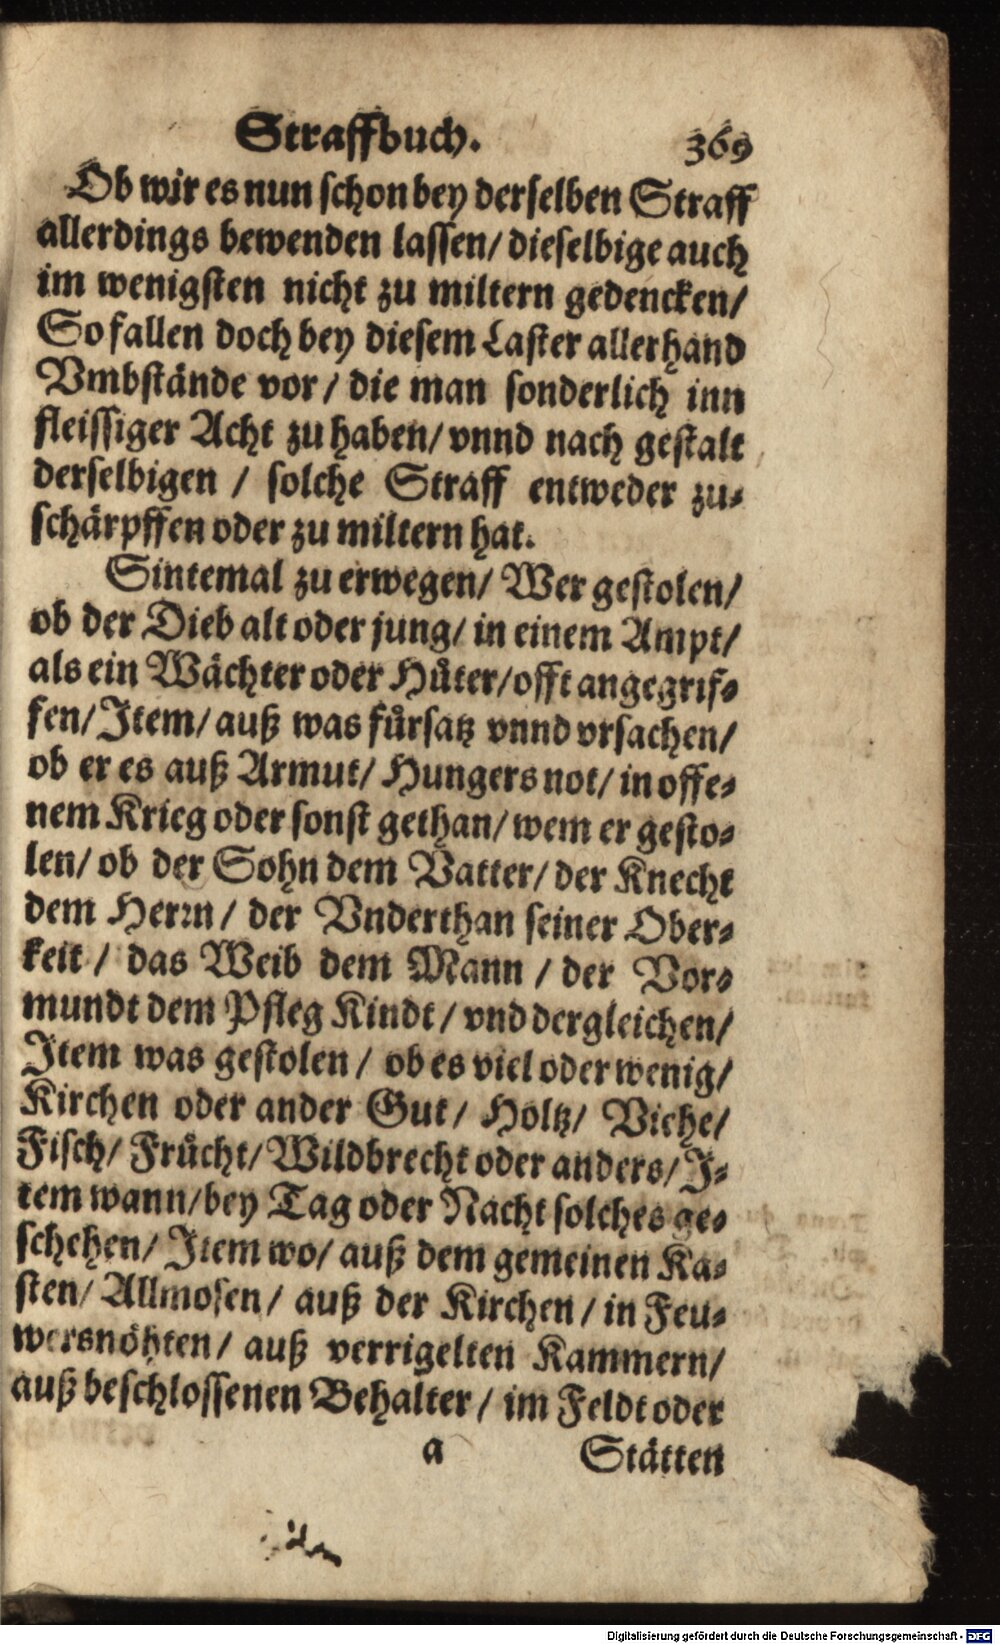 Straffbuch. 369
Ob wir es nun schon bey derselben Straff
allerdings bewenden lassen/ dieselbige auch
im wenigsten nicht zu miltern gedencken/
So fallen doch bey diesem Laster allerhand
Vmbstände vor/ die man sonderlich inn
fleissiger Acht zu haben/ vnnd nach gestalt
derselbigen / solche Straff entweder zu⸗
schärpffen oder zu miltern hat.
Sintemal zu erwegen/ Wer gestolen/
ob der Dieb alt oder jung/ in einem Ampt/
als ein Wächter oder Huͤter/ offt angegrif⸗
fen/ Item/ auß was fuͤrsatz vnnd vrsachen/
ob er es auß Armut/ Hungersnot/ in offe⸗
nem Krieg oder sonst gethan/ wem er gesto⸗
len/ ob der Sohn dem Vatter/ der Knecht
dem Herꝛn/ der Vnderthan seiner Ober⸗
keit / das Weib dem Mann / der Vor⸗
mundt dem Pfleg Kindt/ vnd dergleichen/
Item was gestolen/ ob es viel oder wenig/
Kirchen oder ander Gut/ Holtz/ Viehe/
Fisch/ Fruͤcht/ Wildbrecht oder anders/ I⸗
tem wann/ bey Tag oder Nacht solches ge⸗
schehen/ Item wo/ auß dem gemeinen Ka⸗
sten/ Allmosen/ auß der Kirchen/ in Feu⸗
wersnöhten/ auß verrigelten Kammern/
auß beschlossenen Behalter/ im Feldt oder
a Stätten
Digitalisierung gefördert durch die Deutsche Forschungsgemeinschaft - DFG